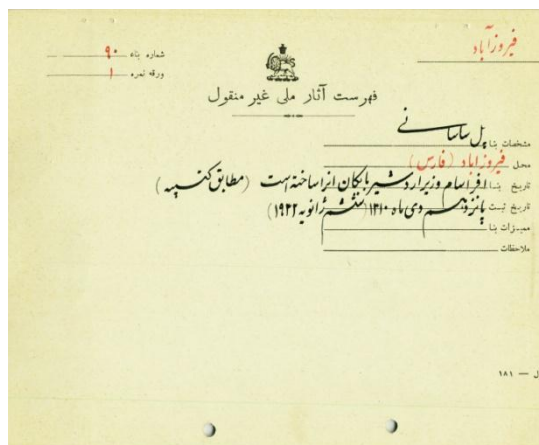 فیروزآباد
شماره بناء ۹۰
ورقه نمره ۱
فهرست آثار ملی غیر منقول
مشخصات بنا پل ساسانی
محل فیروزاباد (فارس)
تاریخ بنا افراسام وزیر اردشیر بابکان انرا ساخته است (مطابق کتیبه)
تاریخ ثبت پانزدهم دی ماه ۱۳۱۰ (ششم ژانویه ۱۹۳۲)
ممیزات بنا
ملاحظات
ل — ۱۸۱